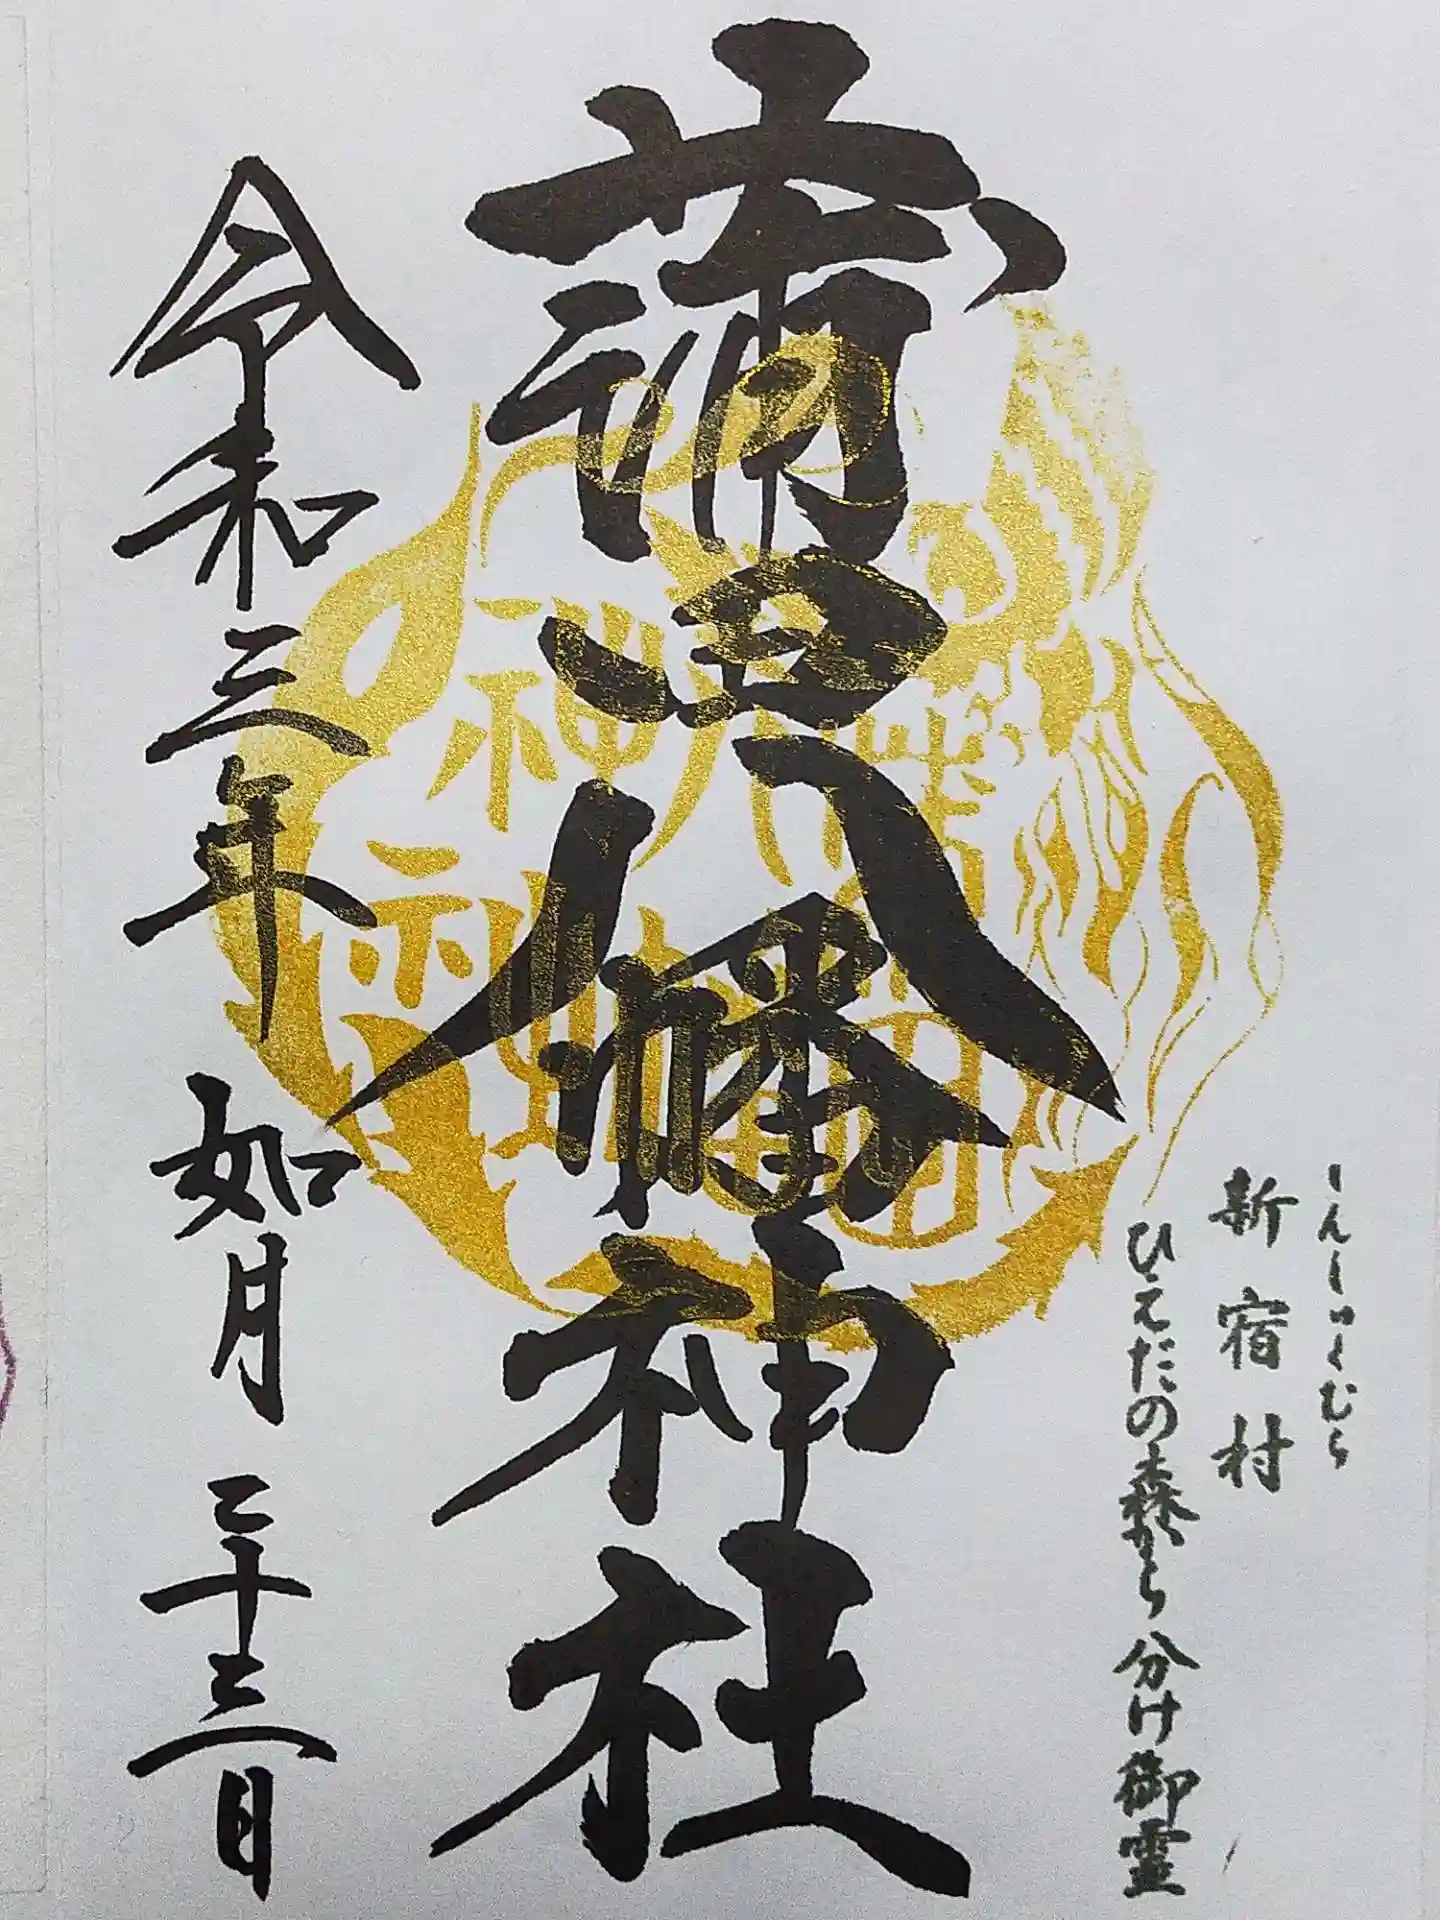 しんしゅくむら
新宿村
ひえだの森から分け御霊
蒲田八幡神社
令和三年 如月 二十三日
蒲田八幡神社